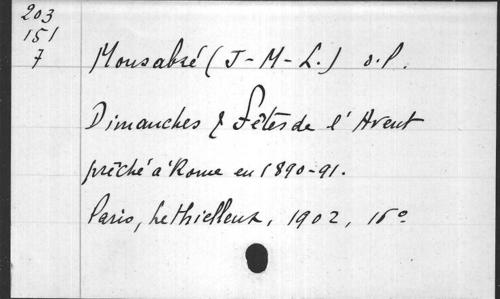 203
151
7
Monsabré (J-M-L.) o.p.
Dimanches & Fêtes de l'Avent
prêché à Rome en 1890-91.
Paris, Lethielleux, 1902, 16°